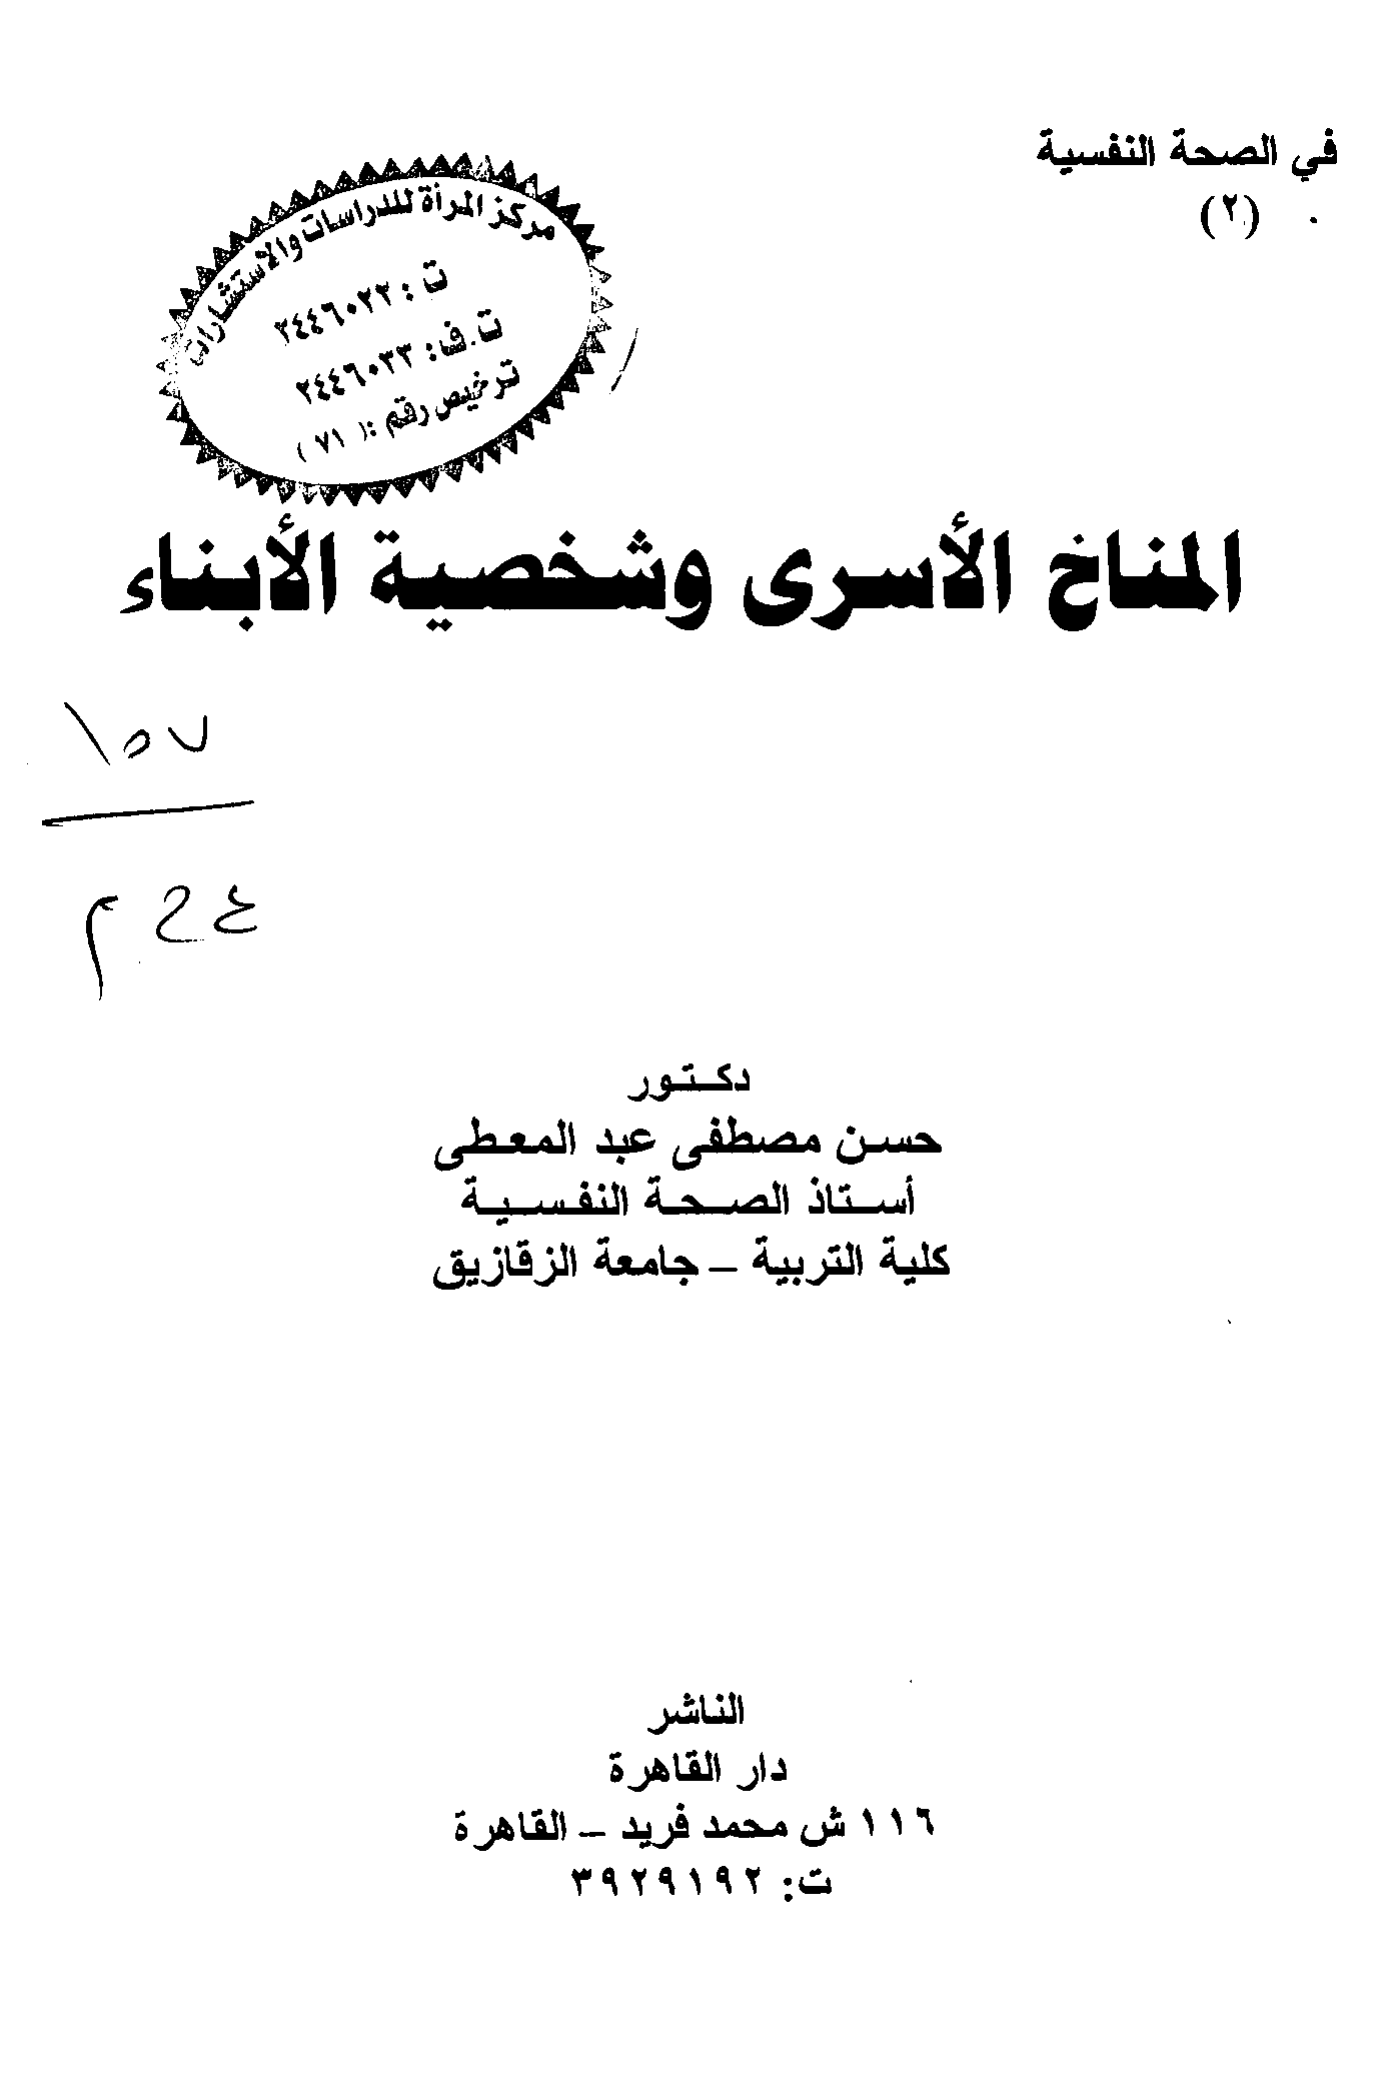 في الصحة النفسية
(٢)
مركز المرأة للدراسات والاستشارات
ت : ٢٤٤٦٠٢٢
ت.ف: ٢٤٤٦٠٣٣
ترخيص رقم : ( ٧١ )
المناخ الأسرى وشخصية الأبناء
١٥٧
ع ح م
دكـتـور
حسن مصطفى عبد المعطى
أستاذ الصحة النفسية
كلية التربية – جامعة الزقازيق
الناشر
دار القاهرة
١١٦ ش محمد فريد – القاهرة
ت: ٣٩٢٩١٩٢